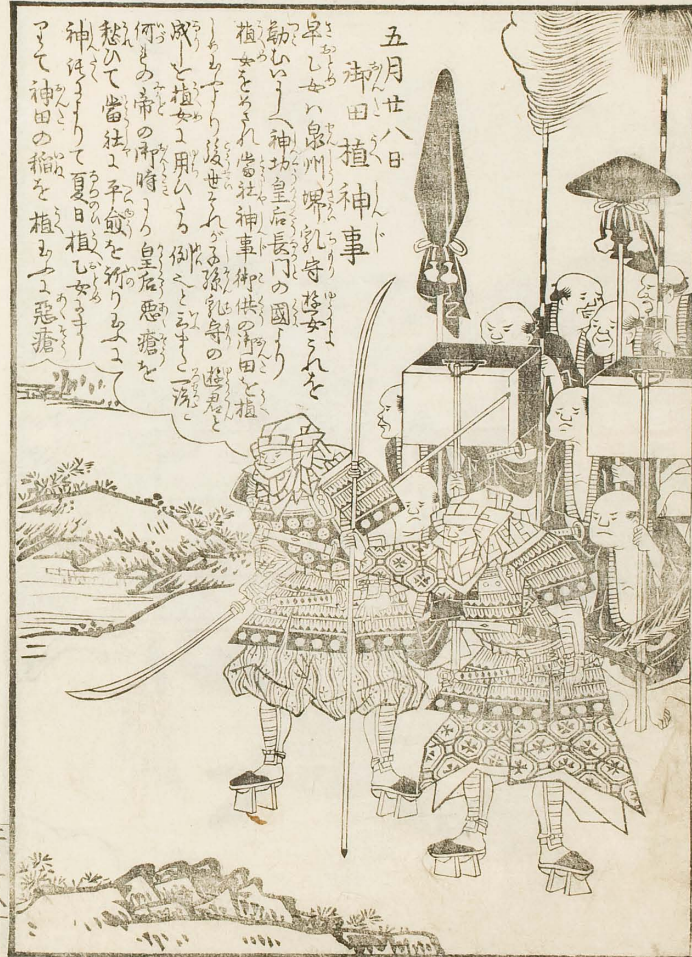 五月廿八日
御田植神事
早乙女ハ泉州堺乳守遊女これを
勤むいにしへ神功皇后長門の國より
植女をめされ當社神事御供の御田を植
しめ玉ふより後世それが子孫乳守の遊君と
成しを植女に用ひたる例也と云また一説に
何れの帝の御時にか皇后悪瘡を
愁ひて當社に平愈を祈り玉ふに
神託ありて夏日植乙女をまし
て神田の稲を植玉ふに悪瘡